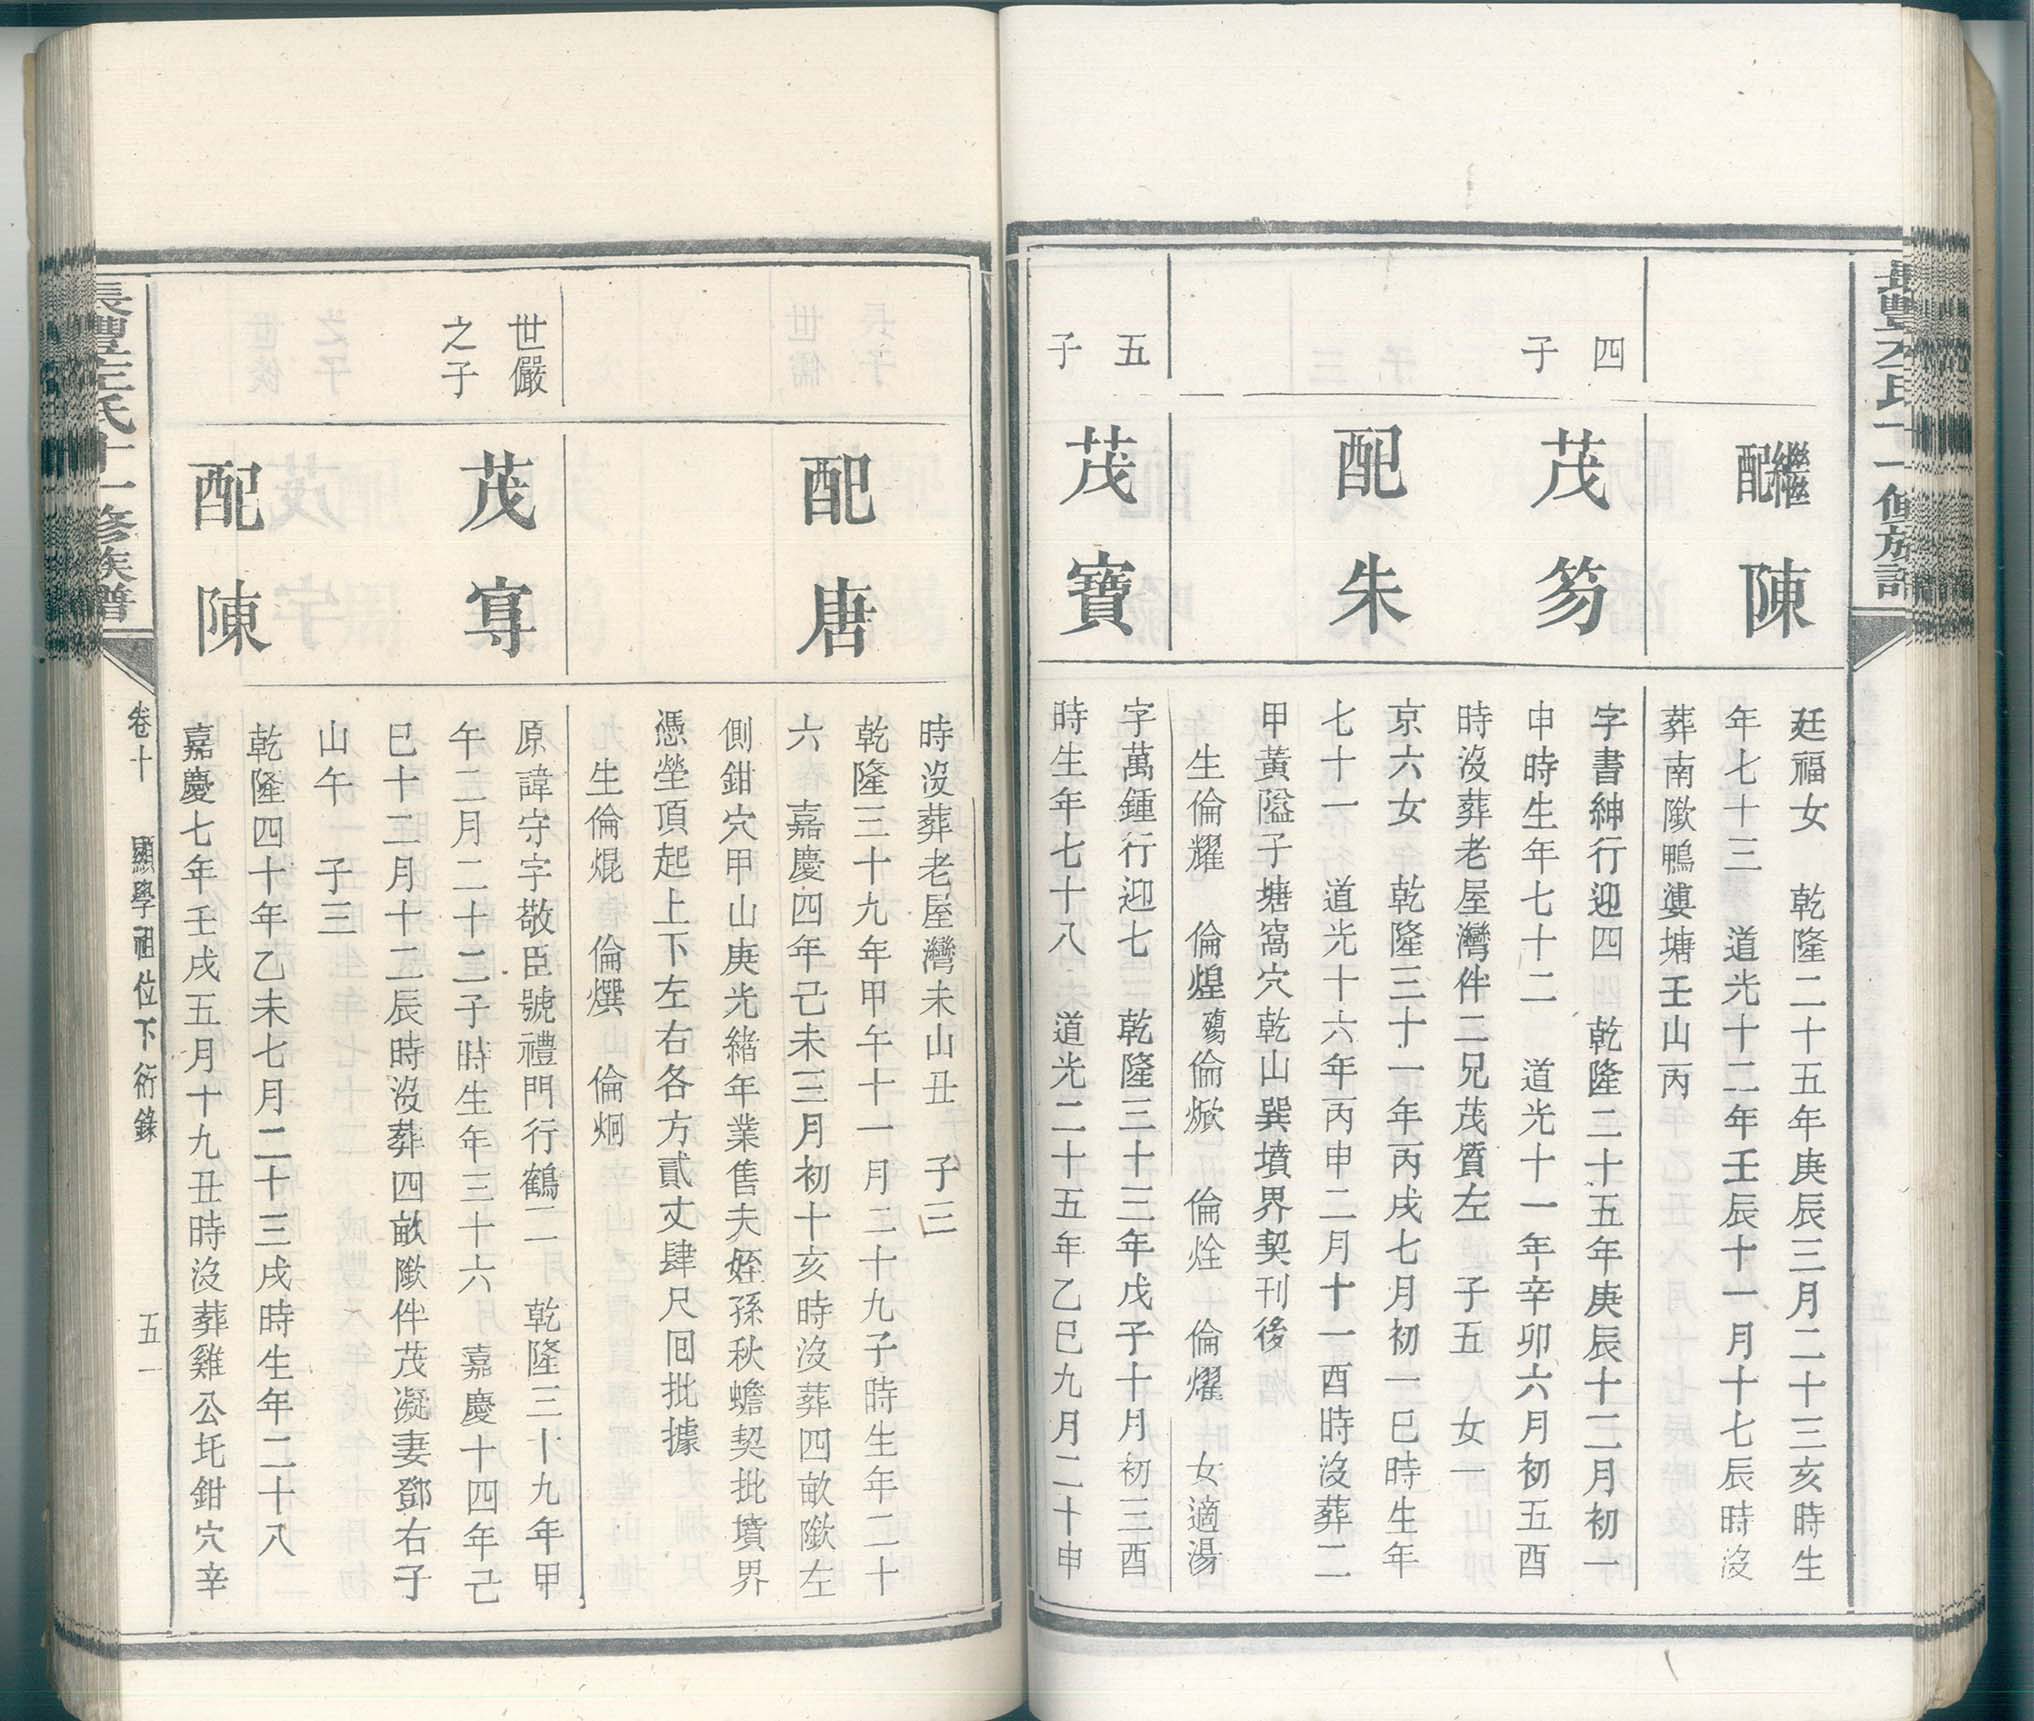 繼配 陳
廷福女 乾隆二十五年庚辰三月二十三亥時生
年七十三 道光十二年壬辰十一月十七辰時沒
葬南歟鴨婁塘壬山丙
四子
茂笏
字書紳行迎四 乾隆二十五年庚辰十二月初一
申時生年七十二 道光十一年辛卯六月初五酉
時沒葬老屋灣伴二兄茂質左 子五 女一
配 朱
京六女 乾隆三十一年丙戌七月初一巳時生年
七十一 道光十六年丙申二月十一酉時沒葬二
甲黃隘子塘窩穴乾山巽墳界契刊後
生倫耀 倫煌殤倫焮 倫烇 倫燿 女適湯
五子
茂寶
字萬鍾行迎七 乾隆三十三年戊子十月初三酉
時生年七十八 道光二十五年乙巳九月二十申
時沒葬老屋灣未山丑 子三
配 唐
乾隆三十九年甲午十一月二十九子時生年二十
六 嘉慶四年己未三月初十亥時沒葬四畝歟左
側鉗穴甲山庚光緒年業售夫姪孫秋蟾契批墳界
憑塋頂起上下左右各方貳丈肆尺囘批據
生倫焜 倫㷷 倫炯
世儼之子
茂䔻
原諱守字敬臣號禮門行鶴二 乾隆三十九年甲
午二月二十二子時生年三十六 嘉慶十四年己
巳十二月十二辰時沒葬四畝歟伴茂凝妻鄧右子
山午 子三
配 陳
乾隆四十年乙未七月二十三戌時生年二十八
嘉慶七年壬戌五月十九丑時沒葬雞公圫鉗穴辛
卷十 顯學祖位下衍錄 五一